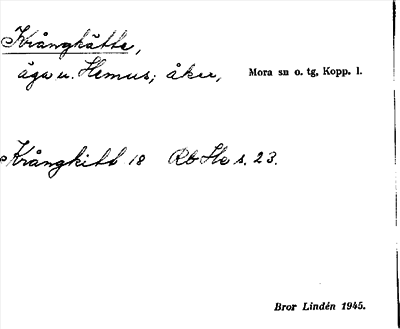 Krångkätte,
äga u. Hemus; åker, Mora sn o. tg, Kopp. l.
Krångkitt 18 Rb He s. 23.
Bror Lindén 1945.